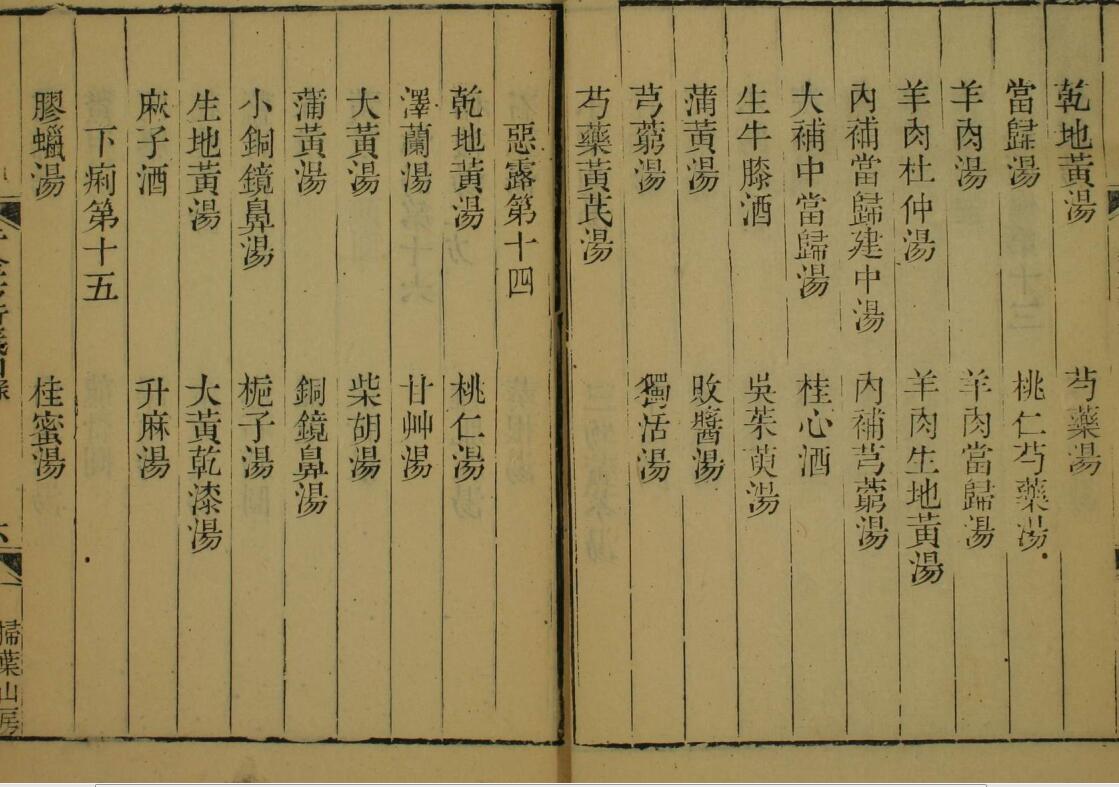 乾地黃湯 芍藥湯
當歸湯 桃仁芍藥湯
羊肉湯 羊肉當歸湯
羊肉杜仲湯 羊肉生地黃湯
內補當歸建中湯 內補芎藭湯
大補中當歸湯 桂心酒
生牛膝酒 吳茱萸湯
蒲黃湯 敗醬湯
芎藭湯 獨活湯
芍藥黃芪湯
惡露第十四
乾地黃湯 桃仁湯
澤蘭湯 甘艸湯
大黃湯 柴胡湯
蒲黃湯 銅鏡鼻湯
小銅鏡鼻湯 梔子湯
生地黃湯 大黃乾漆湯
麻子酒 升麻湯
下痢第十五
膠蠟湯 桂蜜湯
掃葉山房